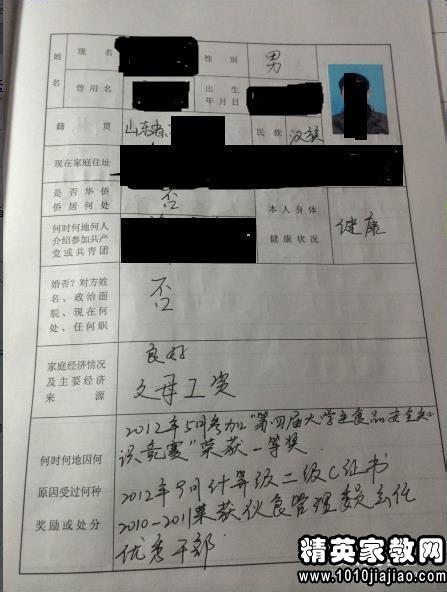 姓 现名 性别 男
名 曾用名 出生年月日
籍贯 山东省 民族 汉族
现在家庭住址
是否华侨
侨居何处 否
本人身体
健康状况 健康
何时何地何人
介绍参加共产
党或共青团
婚否?对方姓
名、政治面
貌、现在何
处、任何职
否
家庭经济情况
及主要经济
来源
良好
父母工资
何时何地因何
原因受过何种
奖励或处分
2012年5月参加"第四届大学生食品安全知
识竞赛"荣获一等奖
2012年9月计等级二级C证书
2010-2011荣获伙食管理委员会任
优秀干部
精英家教网
www.1010jiajiao.com